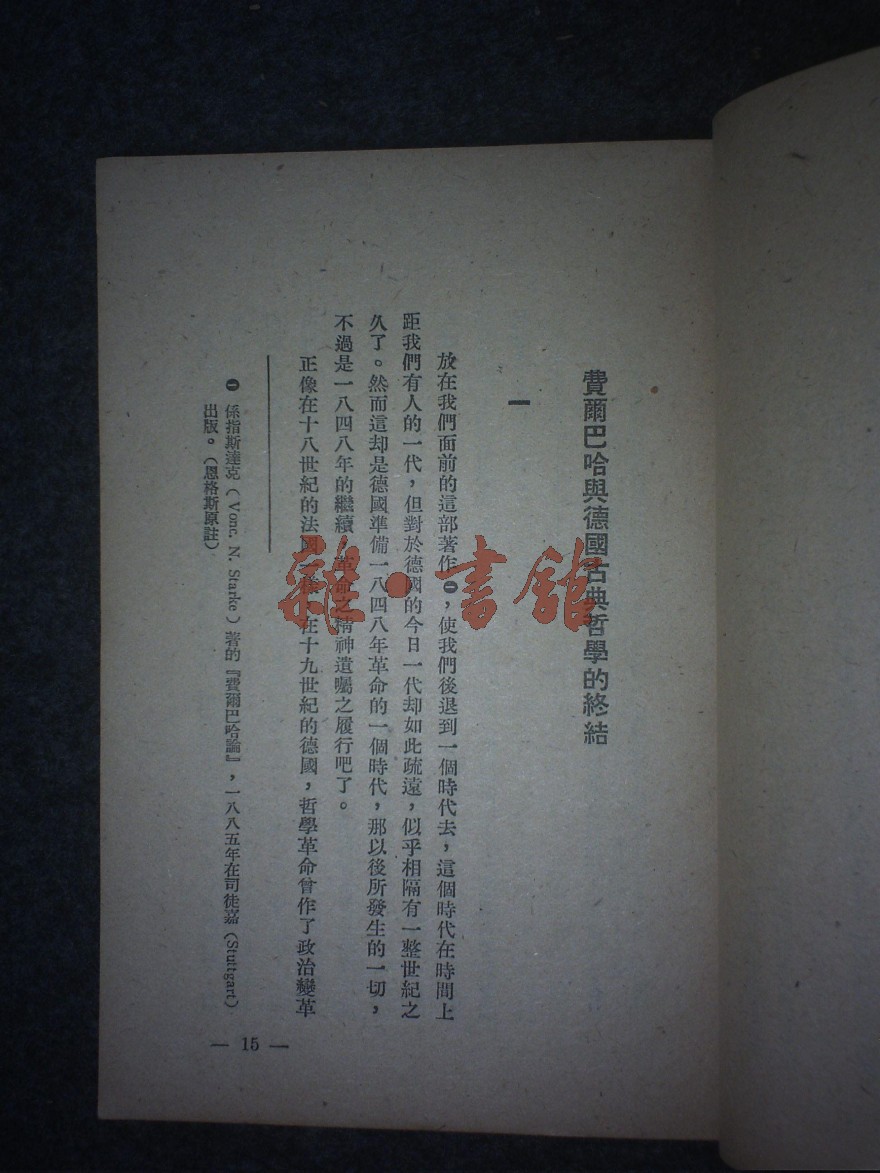 費爾巴哈與德國古典哲學的終結
一
放在我們面前的這部著作❶，使我們後退到一個時代去，這個時代在時間上
距我們有人的一代，但對於德國的今日一代却如此疏遠，似乎相隔有一整世紀之
久了。然而這却是德國準備一八四八年革命的一個時代，那以後所發生的一切，
不過是一八四八年的繼續，革命之精神遺囑之履行吧了。
正像在十八世紀的法國一樣，在十九世紀的德國，哲學革命曾作了政治變革
❶ 係指斯達克（Vonc. N. Starke）著的『費爾巴哈論』，一八八五年在司徒嘉（Stuttgart）
出版。（恩格斯原註）
— 15 —
雜·書館